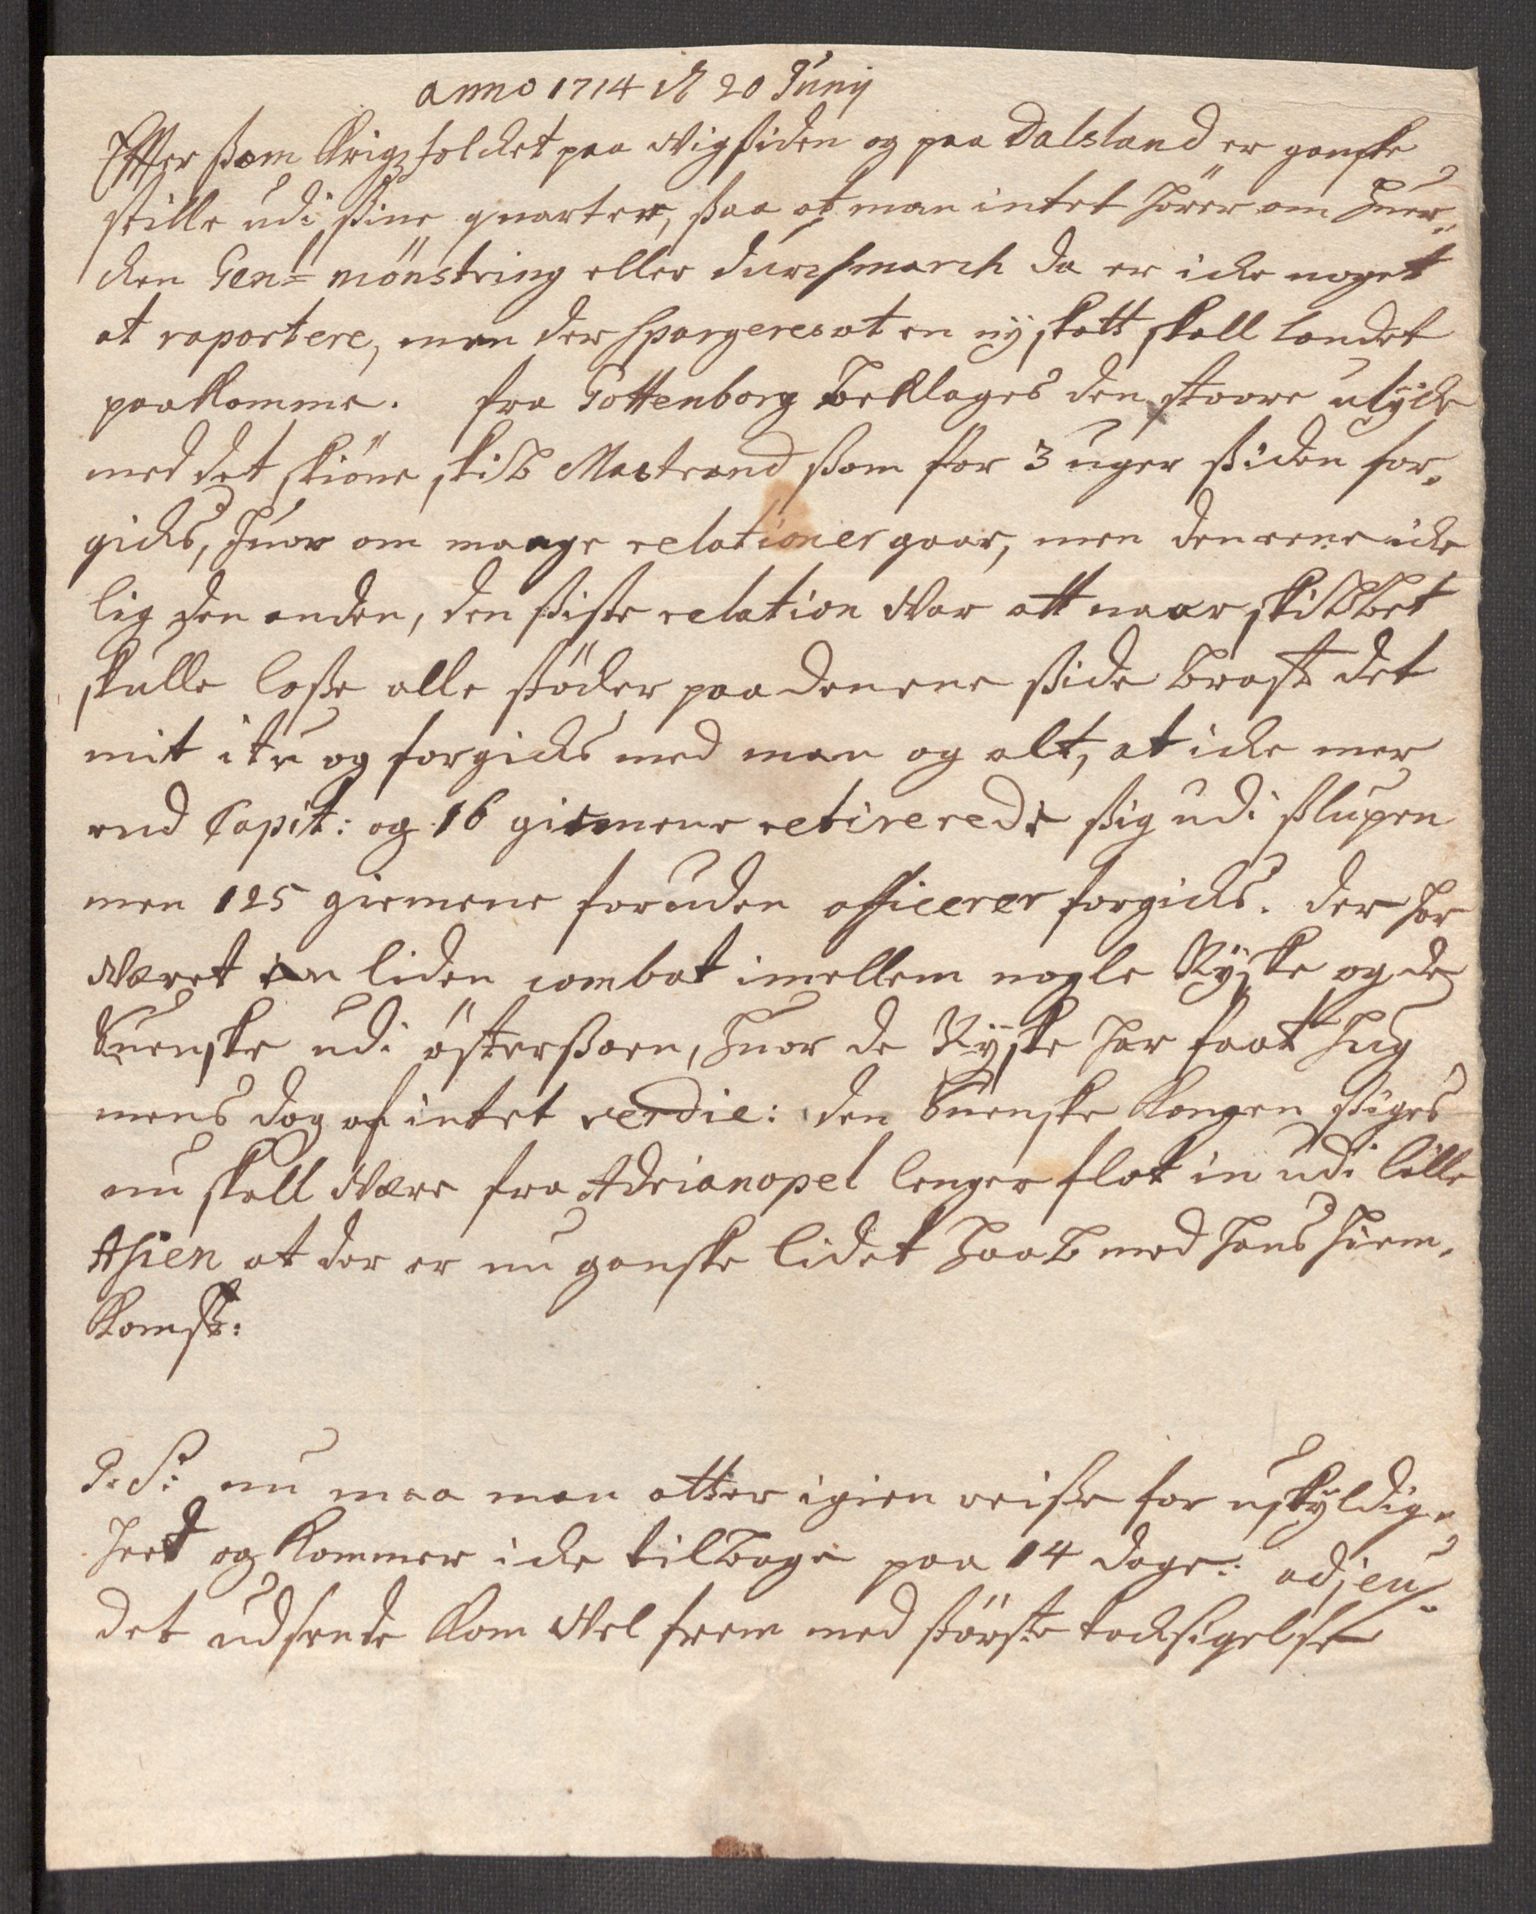 anno 1714 d 20 Junij
Effter ßom Krigzfolcket paa Wigsiden og paa Dalsland er ganske
stille udi ßine quarter, ßaa at man intet hörer om huer-
cken Gen= mönstring eller durchmarch da er icke noget
at raportere, men der spargeres at en ny skatt skall landet
paakomme. fra Gottenborg beklages den stoore ulycke
med det skiöne skib Mastrand ßom for 3 uger ßiden for-
gicks, huor om mange relationer gaar, men den eene icke
lig den anden, den ßiste relation War att naar skibbet
skulle laße alle stöcker paa den ene ßide brast det
mit itu og forgicks med man og alt, at icke mer
end Capit: og 16 giemene retirerede ßig udi slupen
men 125 giemene foruden officerer forgicks. der har
Wæret en liden combat imellem nogle Ryske og de
Suenske udi östersßoen, huor de Ryske har faat hug
mens dog af intet verdie: den Suenske Kongen siges
nu skall Wære fra Adrianopel lenger flöt in udi lille
Asien at der er nu ganske lidet haab med hans hiem-
komst:
P. S: nu maa man atter igien reise for uskyldig-
heet og kommer icke tilbage paa 14 dage: adjeu
det udsente kom Wel frem med störste tacksigelse